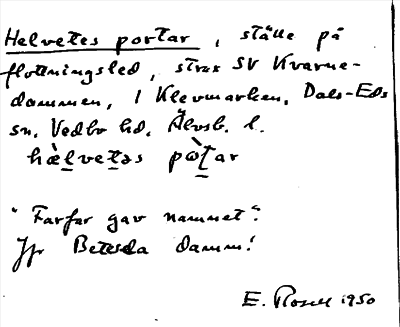 Helvetes portar, ställe på
flottningsled, strax SV Kvarne-
dammen, i Klevmarken, Dals-Eds
sn, Vedbo hd, Älvsb. l.
hæ̀lvetəs pòtar
"Farfar gav namnet".
Jfr Betesda damm!
E. Rosell 1950